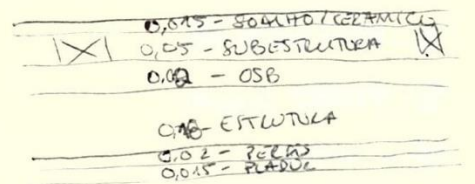 0,015 - SOALHO / CERÂMICO
0,05 - SUBESTRUTURA
0.02 - OSB
0,16 - ESTRUTURA
0,02 - PERFIS
0,015 - PLADUR